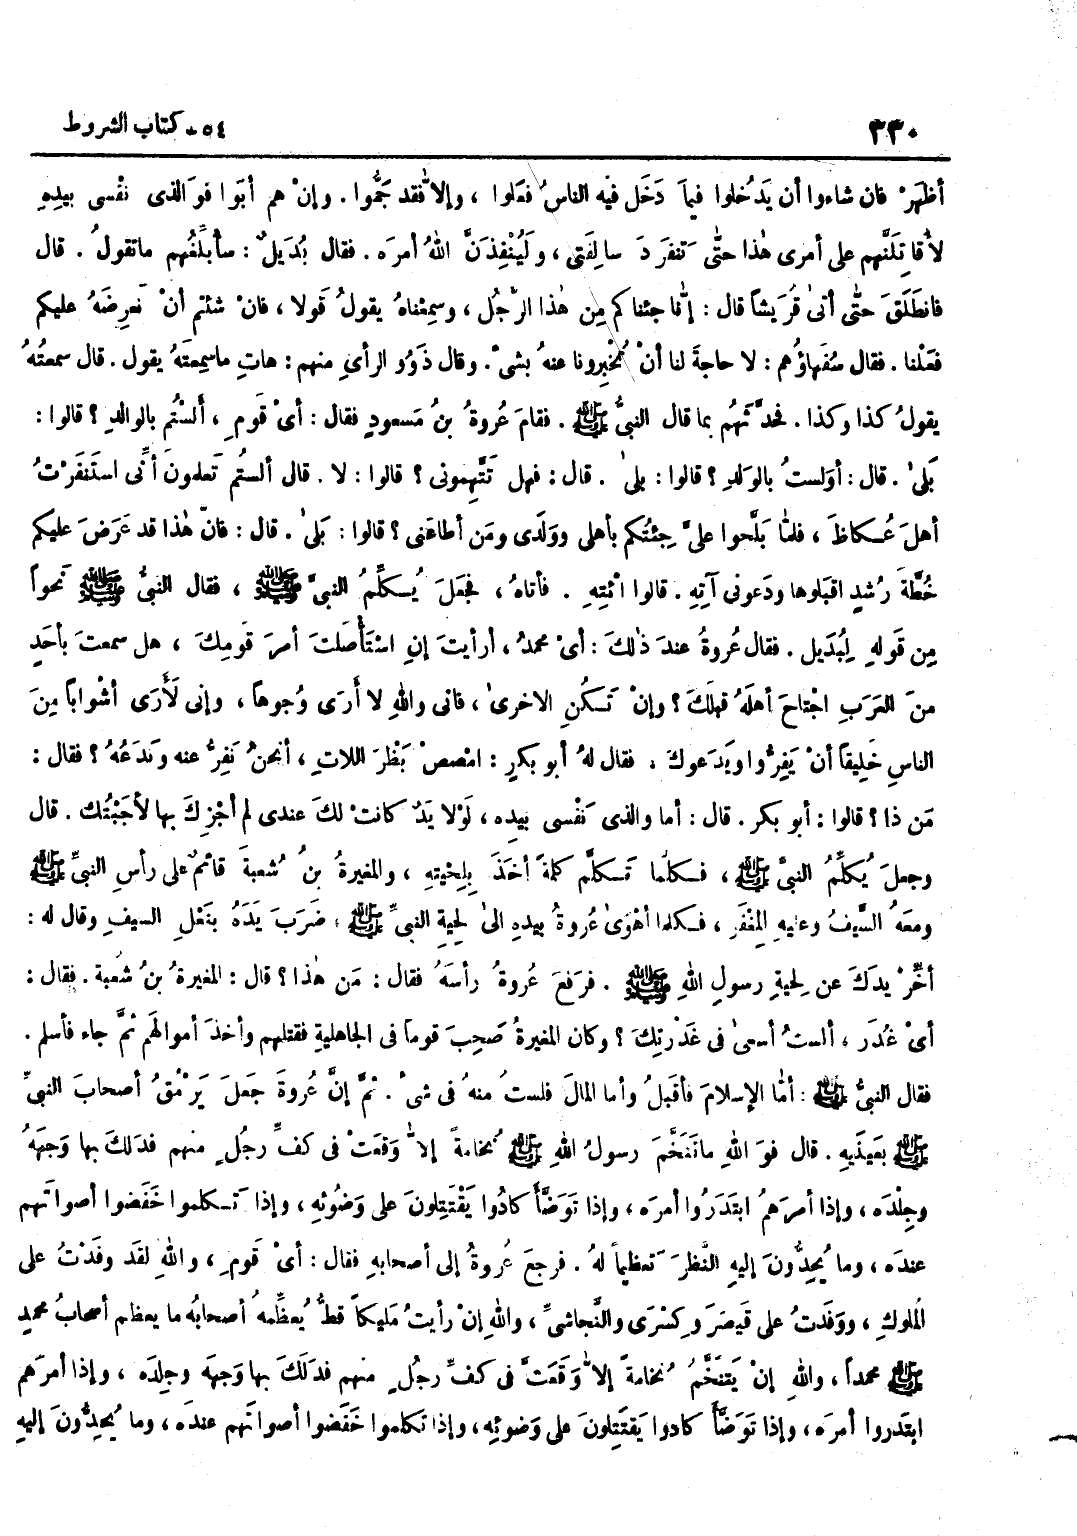 ٣٣٠ ٥٤ - كتاب الشروط
أظهَرْ فان شاءوا أن يَدْخُلوا فيما دَخَل فيه الناسُ فعَلوا ، وإلاّ فقد جَمُّوا . وإنْ هم أبَوا فوَالذى نفْسى بيدِهِ
لأُقاتِلَنَّهم على أمرى هٰذا حتّى تَنفَرِدَ سالِفَتى ، ولَيُنْفِذَنَّ اللهُ أمرَه . فقال بُدَيلٌ : سأُبلِّغُهم ماتقولُ . قال
فانطَلَقَ حتّى أتىٰ قُرَيشاً قال : إنّا جئناكم مِن هٰذا الرّجُل ، وسمِعْناهُ يقولُ قَولا ، فانْ شئتم أنْ نَعرِضَهُ عليكم
فعَلْنا . فقال سُفَهاؤُهم : لا حاجةَ لنا أنْ تُخْبِرونا عنهُ بشىْ . وقال ذَوُو الرأىِ منهم : هاتِ ماسمِعتَهُ يقول . قال سمعتُهُ
يقولُ كذا وكذا . فحدَّثَهُم بما قال النبىُّ ﷺ . فقامَ عُروةُ بنُ مَسعودٍ فقال : أىْ قَومِ ، ألَستُم بالوالدِ ؟ قالوا :
بَلىٰ . قال : أوَلستُ بالوَلدِ ؟ قالوا : بلىٰ . قال : فهل تَتَّهِمونى ؟ قالوا : لا . قال ألستُم تَعلمونَ أنّى استَنفَرْتُ
أهلَ عُكاظَ ، فلمّا بَلَّحوا علىَّ جِئتُكم بأهلى ووَلَدى ومَن أطاعَنى ؟ قالوا : بَلىٰ . قال : فانّ هٰذا قد عَرَضَ عليكم
خُطَّةَ رُشدٍ اقبَلوها ودَعونى آتِهِ . قالوا ائْتِهِ . فأتاهُ ، فجعَلَ يُكلِّمُ النبىَّ ﷺ ، فقال النبىُّ ﷺ نَحواً
مِن قَولهِ لِبُدَيل . فقال عُروةُ عندَ ذٰلكَ : أىْ محمدُ ، أرأيتَ إنِ اسْتَأْصَلتَ أمرَ قَومِكَ ، هل سمعتَ بأحَدٍ
منَ العَرَبِ اجْتاحَ أهلَهُ قبلَكَ ؟ وإنْ تَكُنِ الاخرىٰ ، فانى واللهِ لا أرَى وُجوهاً ، وإنى لَأَرَى أشْواباً مِنَ
الناسِ خَلِيقاً أنْ يَفِرُّوا ويَدَعوكَ . فقال لهُ أبو بكرٍ : امْصصْ بَظْرَ اللاتِ ، أنحنُ نَفِرُّ عنه ونَدَعُهُ ؟ فقال :
مَن ذا ؟ قالوا : أبو بكر . قال : أما والذى نَفْسى بيده ، لَوْلا يَدٌ كانتْ لكَ عندى لم أجْزِكَ بها لأجَبْتُك . قال
وجعلَ يُكلِّمُ النبىَّ ﷺ ، فكلّما تكلّم كلمةً أخَذَ بِلِحْيتهِ ، والمغيرةُ بنُ شُعبةَ قائمٌ على رأسِ النبىِّ ﷺ
ومعَهُ السَّيفُ وعليهِ المِغْفَر ، فكلما أهْوَىٰ عُروةُ بيدهِ الىٰ لِحيةِ النبىِّ ﷺ ضَرَبَ يَدَهُ بنَعْلِ السيفِ وقال له :
أخِّرْ يدَكَ عن لِحيةِ رسولِ اللهِ ﷺ . فرَفعَ عُروةُ رأسَهُ فقال : مَن هٰذا ؟ قال : المغيرةُ بنُ شُعبة . فقال :
أىْ غُدَر ، ألستُ أسعىٰ فى غَدْرتِكَ ؟ وكان المغيرةُ صَحِبَ قوماً فى الجاهليةِ فقتلهم وأخذَ أموالهَم ثمَّ جاء فأسلم .
فقال النبىُّ ﷺ : أمّا الإسلامَ فأقبلُ وأما المالَ فلستُ منهُ فى شىْ . ثمَّ إنَّ عُروةَ جَعلَ يَرْمُقُ أصحابَ النبىِّ
ﷺ بعَينَيهِ . قال فوَ اللهِ ماتَنَخَّمَ رسولُ اللهِ ﷺ نُخامةً إلاّ وَقعَتْ فى كفِّ رجُلٍ منهم فدَلكَ بها وَجهَهُ
وجِلْدَه ، وإذا أمرَهمُ ابتَدَرُوا أمرَه ، وإذا تَوَضَّأَ كادُوا يَقْتَتِلونَ على وَضُوئهِ ، وإذا تَكلموا خَفَضوا أصواتَهم
عندَه ، وما يُحِدُّونَ إليهِ النَّظرَ تَعظيماً لهُ . فرجعَ عُروةُ إلى أصحابهِ فقال : أىْ قَومِ ، واللهِ لقَد وفَدْتُ على
الُملوكِ ، ووَفَدتُ على قَيصَرَ وكِسْرَى والنَّجاشىِّ ، واللهِ إنْ رأيتُ مَليكاً قطُّ يُعظِّمهُ أصحابُه ما يعظم أصحابُ محمدٍ
ﷺ محمداً ، واللهِ إنْ يَتَنَخَّمُ نُخامةً إلاّ وَقَعَتْ فى كفِّ رجُلٍ منهم فدَلَكَ بها وَجهَه وجِلدَه ، وإذا أمرَهم
ابتَدروا أمرَه ، وإذا تَوَضَّأَ كادوا يَقتَتِلونَ على وَضوئِه ، وإذا تَكلموا خَفَضوا أصواتَهم عندَه ، وما يُحِدُّونَ إليهِ